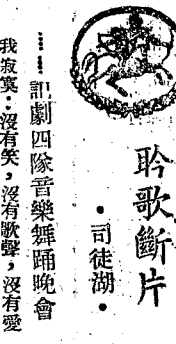 聆歌斷片
•司徒湖•
……記劇四隊音樂舞踊晚會
我寂寞：沒有笑，沒有歌聲，沒有愛